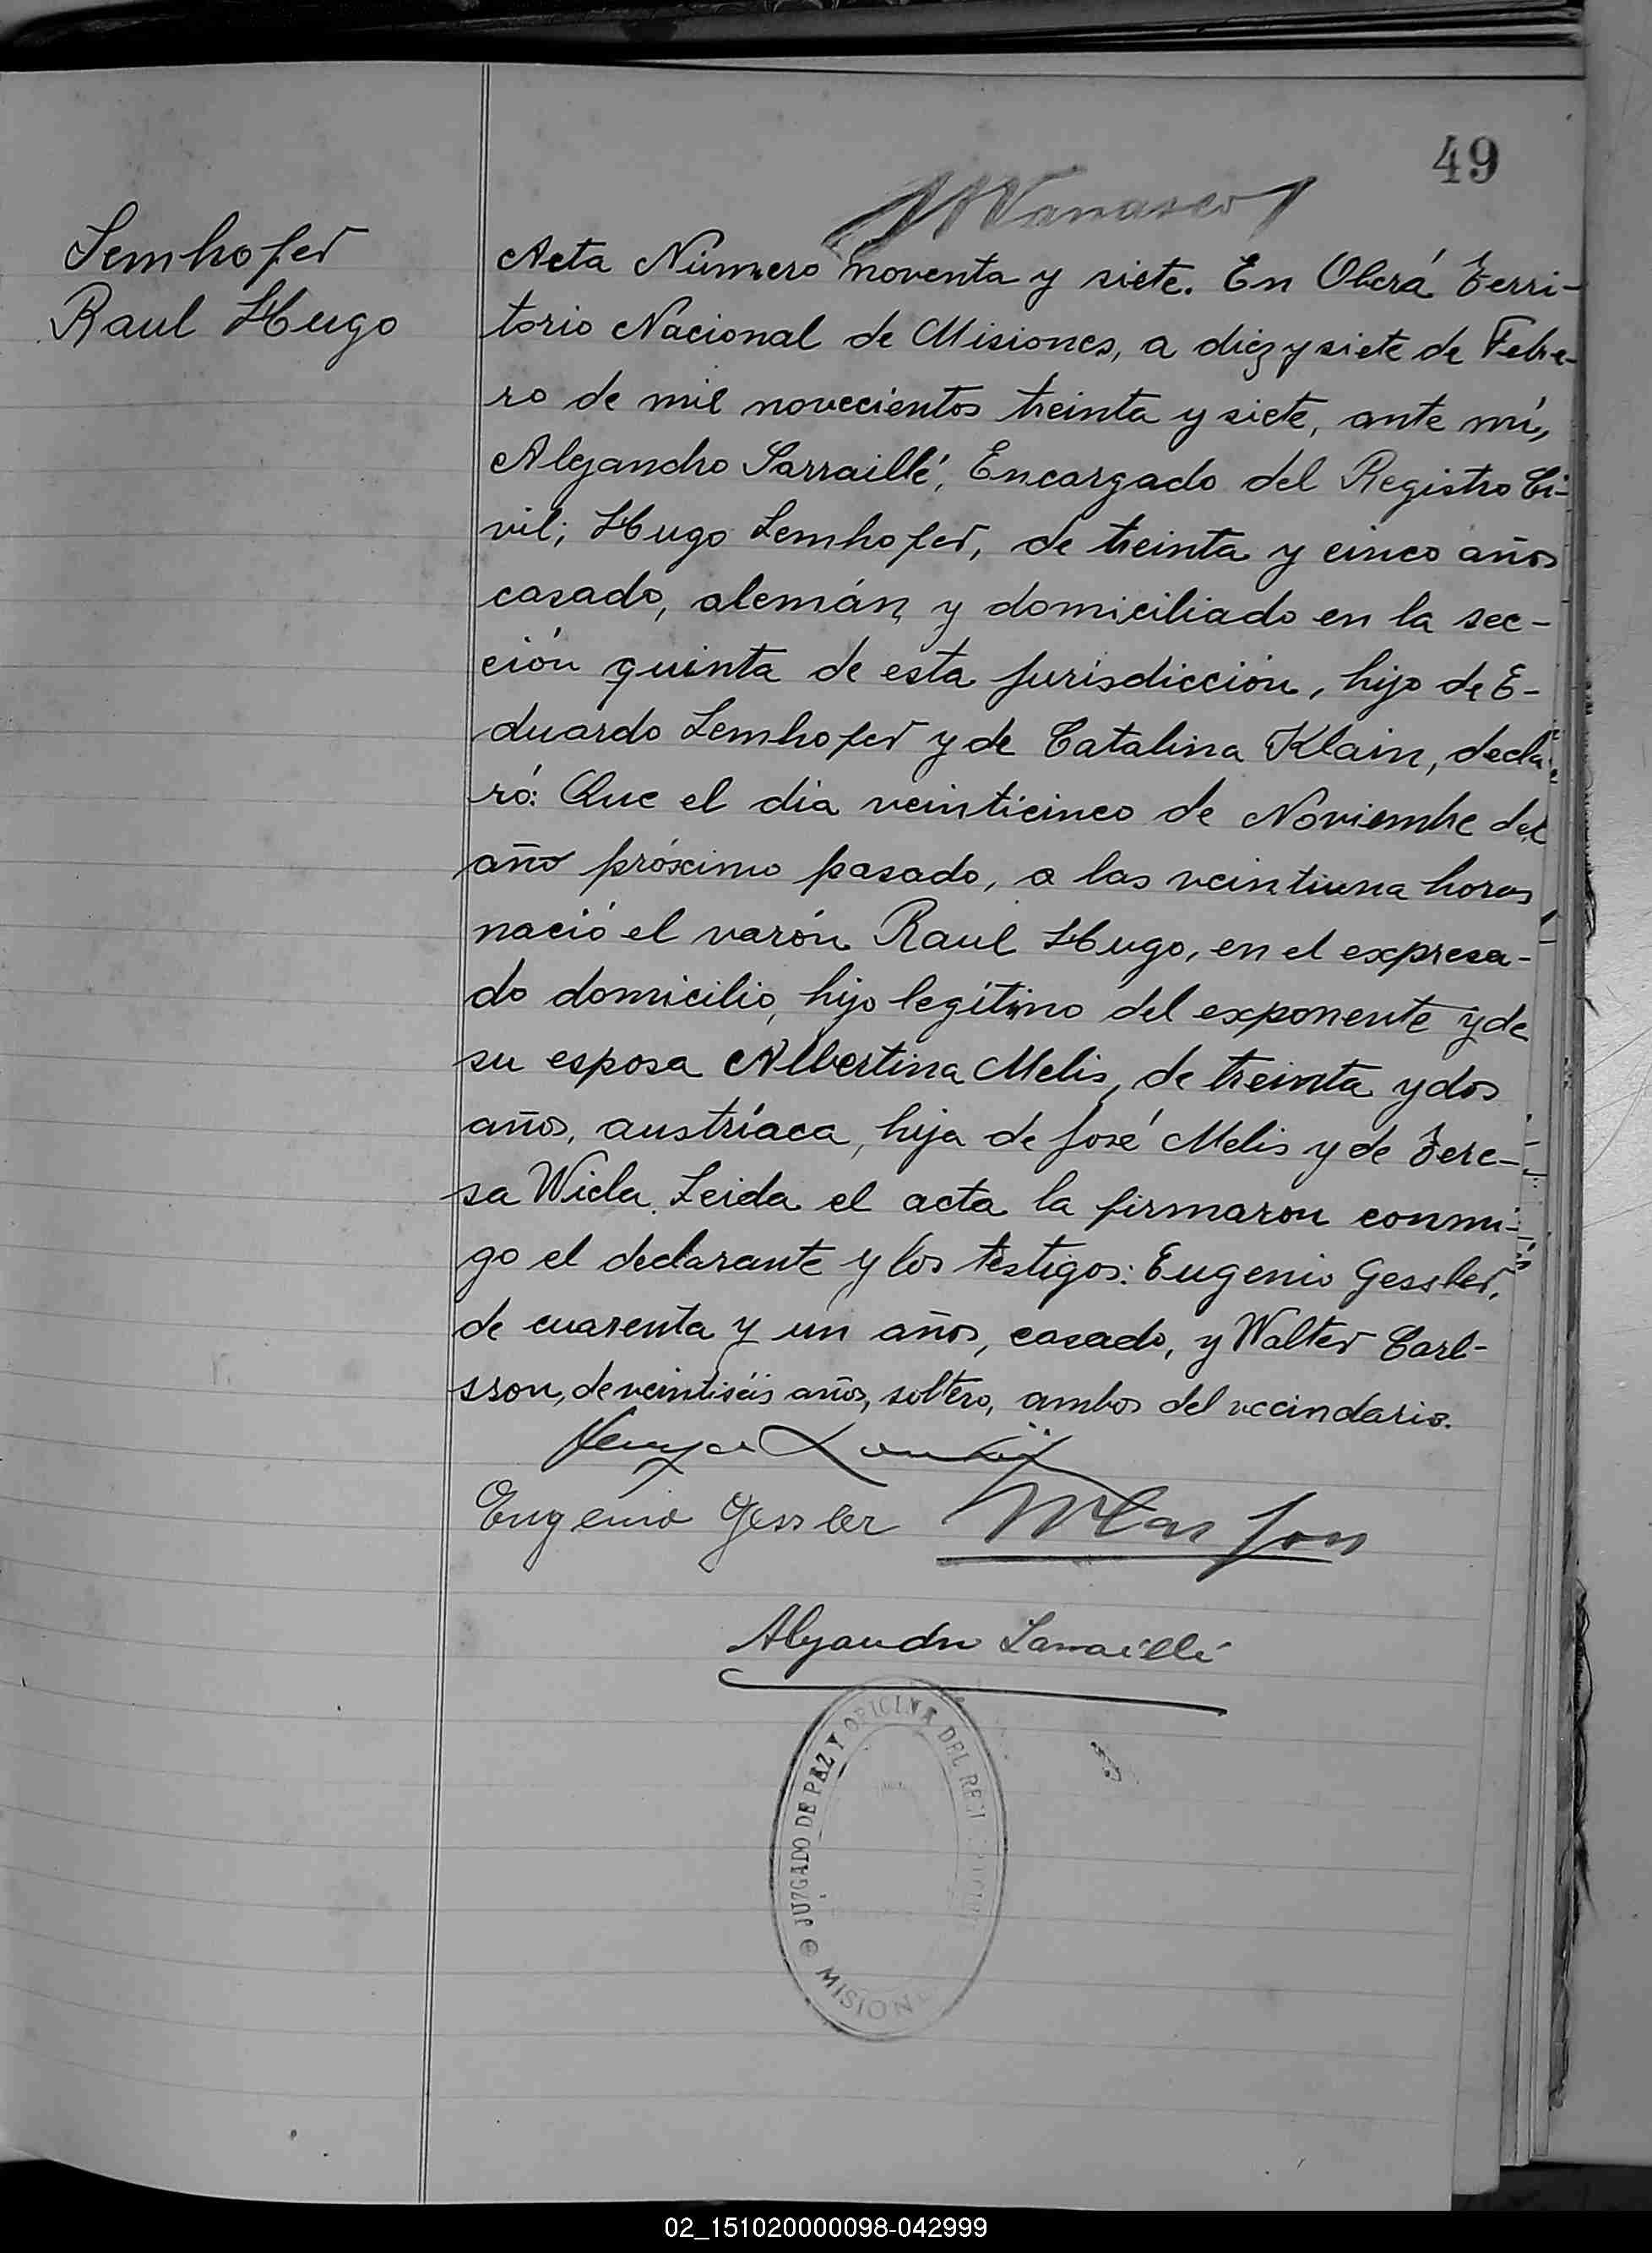 49
Lemhofer
Raul Hugo
Acta Número noventa y siete. En Oberá Terri-
torio Nacional de Misiones, a diez y siete de Febre-
ro de mil novecientos treinta y siete, ante mí,
Alejandro Sarraillé, Encargado del Registro Ci-
vil; Hugo Lemhofer, de treinta y cinco años
casado, alemán, y domiciliado en la sec-
ción quinta de esta jurisdicción, hijo de E-
duardo Lemhofer y de Catalina Klain, decla-
ró: Que el dia veinticinco de Noviembre del
año próximo pasado, a las veintiuna horas
nació el varón Raul Hugo, en el expresa-
do domicilio, hijo legítimo del exponente y de
su esposa Albertina Melis, de treinta y dos
años, austríaca, hija de José Melis y de Tere-
sa Wicla. Leida el acta la firmaron conmi-
go el declarante y los testigos: Eugenio Gessler,
de cuarenta y un años, casado, y Walter Carl-
sson, de veintiséis años, soltero, ambos del vecindario.
Eugenio Gessler
Alejandro Sarraillé
JUZGADO DE PAZ Y OFICINA DEL
MISION
02_151020000098-042999